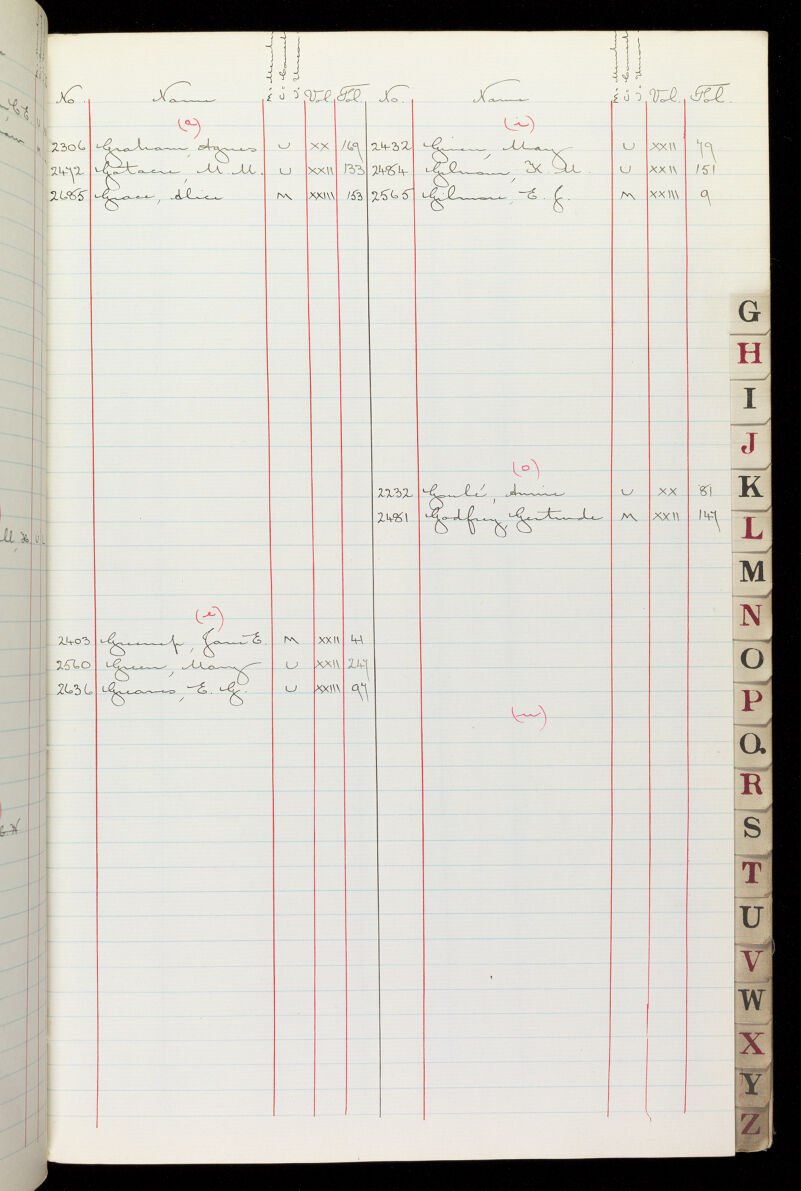 No. Name Vol. Fol.
(a)
2306 Graham, Agnes U XX 169
2472 Gatacre, M. M. U XXII 133
2685 Grace, Alice M XXIII 153
(e)
2403 Jane E. M XXII 41
2560 Green, Mary U XXII 247
2636 Greaves, E. G. U XXIII 97
No. Name Vol. Fol.
(i)
2432 Given, May U XXII 79
2484 M. U XXII 151
2565 Gilmore, E. J. M XXIII 9
(o)
2232 Goulé, Annie U XX 81
2481 Godfrey, Gertrude M XXII 147
(u)
G
H
I
J
K
L
M
N
O
P
Q.
R
S
T
U
V
W
X
Y
Z